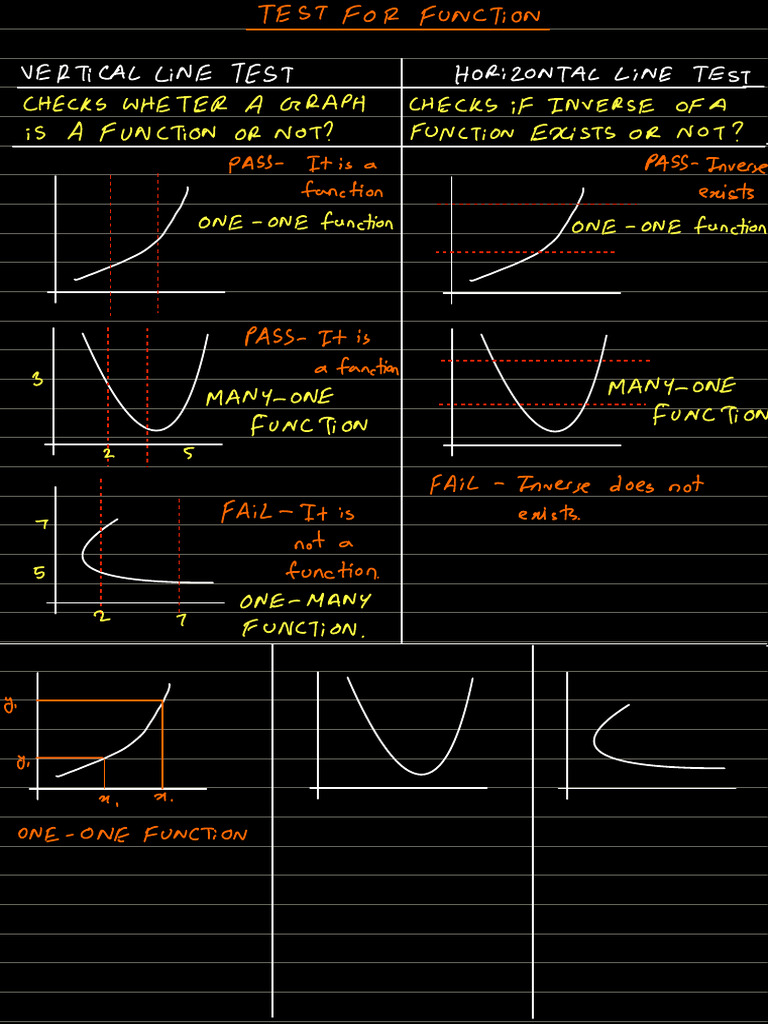 TEST FOR FUNCTION
VERTICAL LINE TEST
CHECKS WHETER A GRAPH
IS A FUNCTION OR NOT?
HORIZONTAL LINE TEST
CHECKS IF INVERSE OF A
FUNCTION EXISTS OR NOT?
PASS- It is a
function
ONE-ONE function
PASS-Inverse
exists
ONE-ONE function
3
2
5
PASS- It is
a function
MANY-ONE
FUNCTION
MANY-ONE
FUNCTION
FAIL - Inverse does not
exists.
7
5
2
7
FAIL - It is
not a
function.
ONE-MANY
FUNCTION.
y1
y1
x1
x1
ONE-ONE FUNCTION